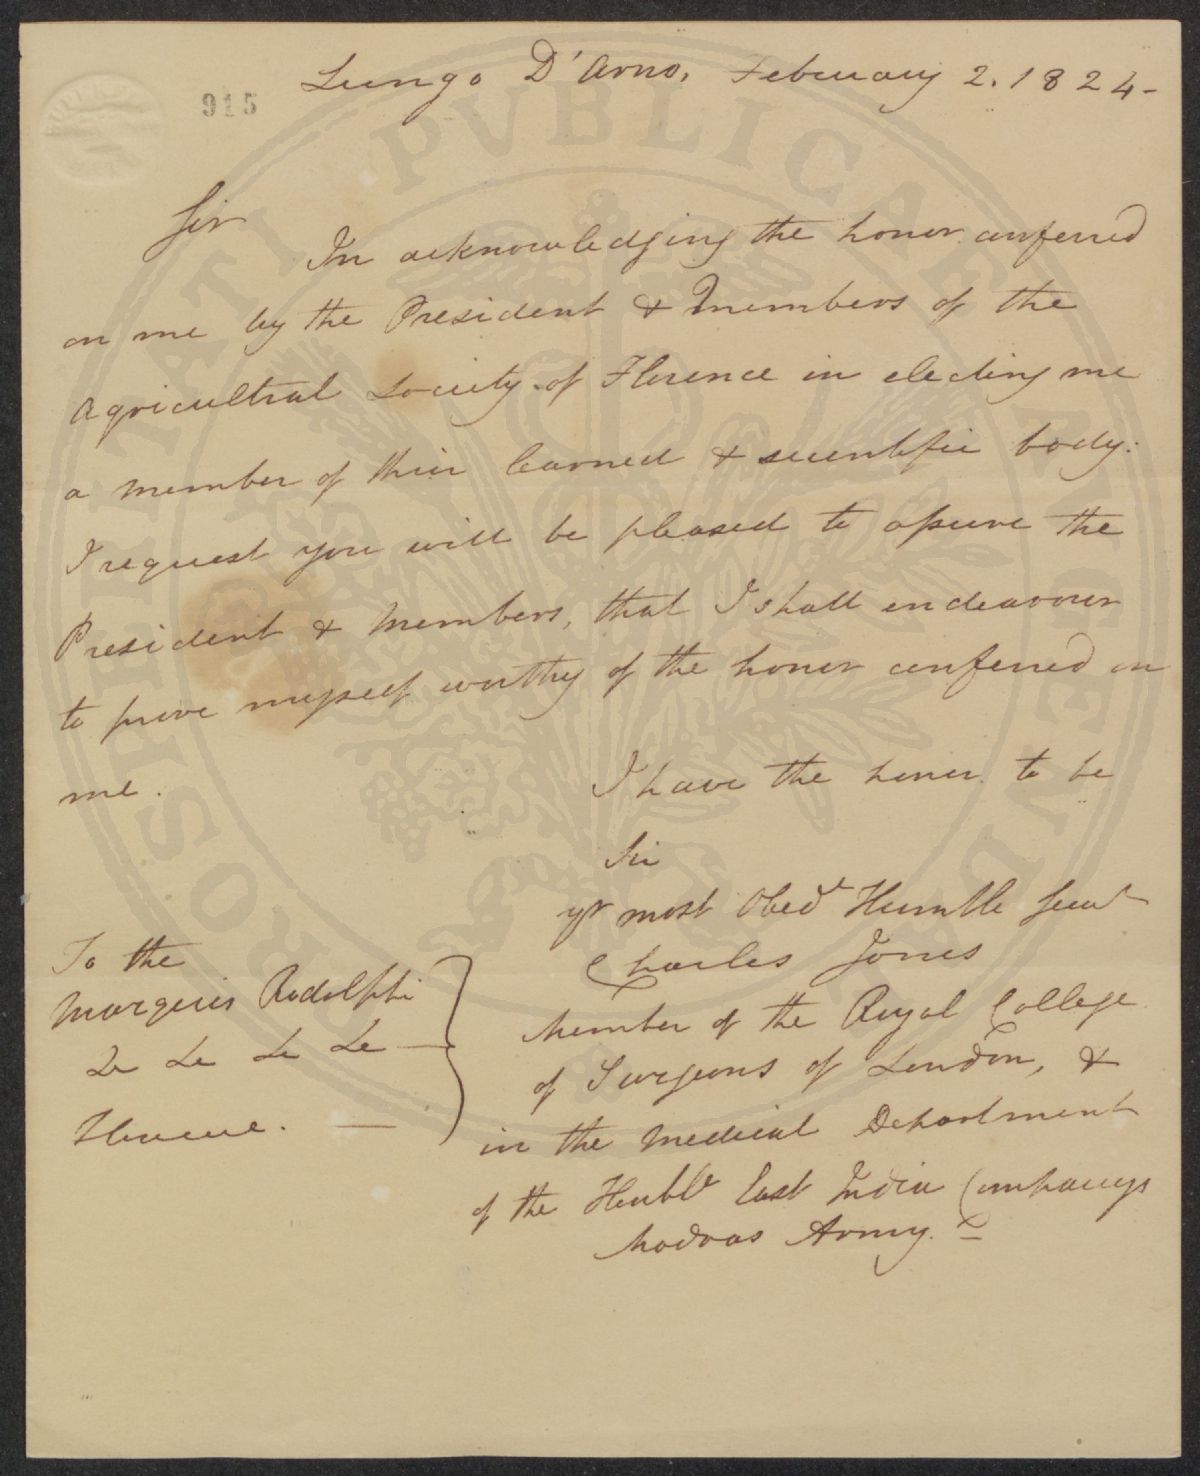 915
Lungo D'Arno, February 2. 1824-
Sir
In acknowledging the honor conferred
on me by the President & Members of the
Agricultral Society of Florence in electing me
a member of their learned & scientific body:
I request you will be pleased to assure the
President & Members, that I shall endeavour
to prove myself worthy of the honor conferred on
me.
I have the honor to be
Sir
yr most Obedt Humble Servt
Charles Jones
Member of the Royal College
of Surgeons of London, &
in the Medical Department
of the Honble East India Companys
Madras Army.
To the
Marquis Ridolphi
&c &c &c &c
Florence.
PROSPERITATI PVBLICAE AVGENDAE